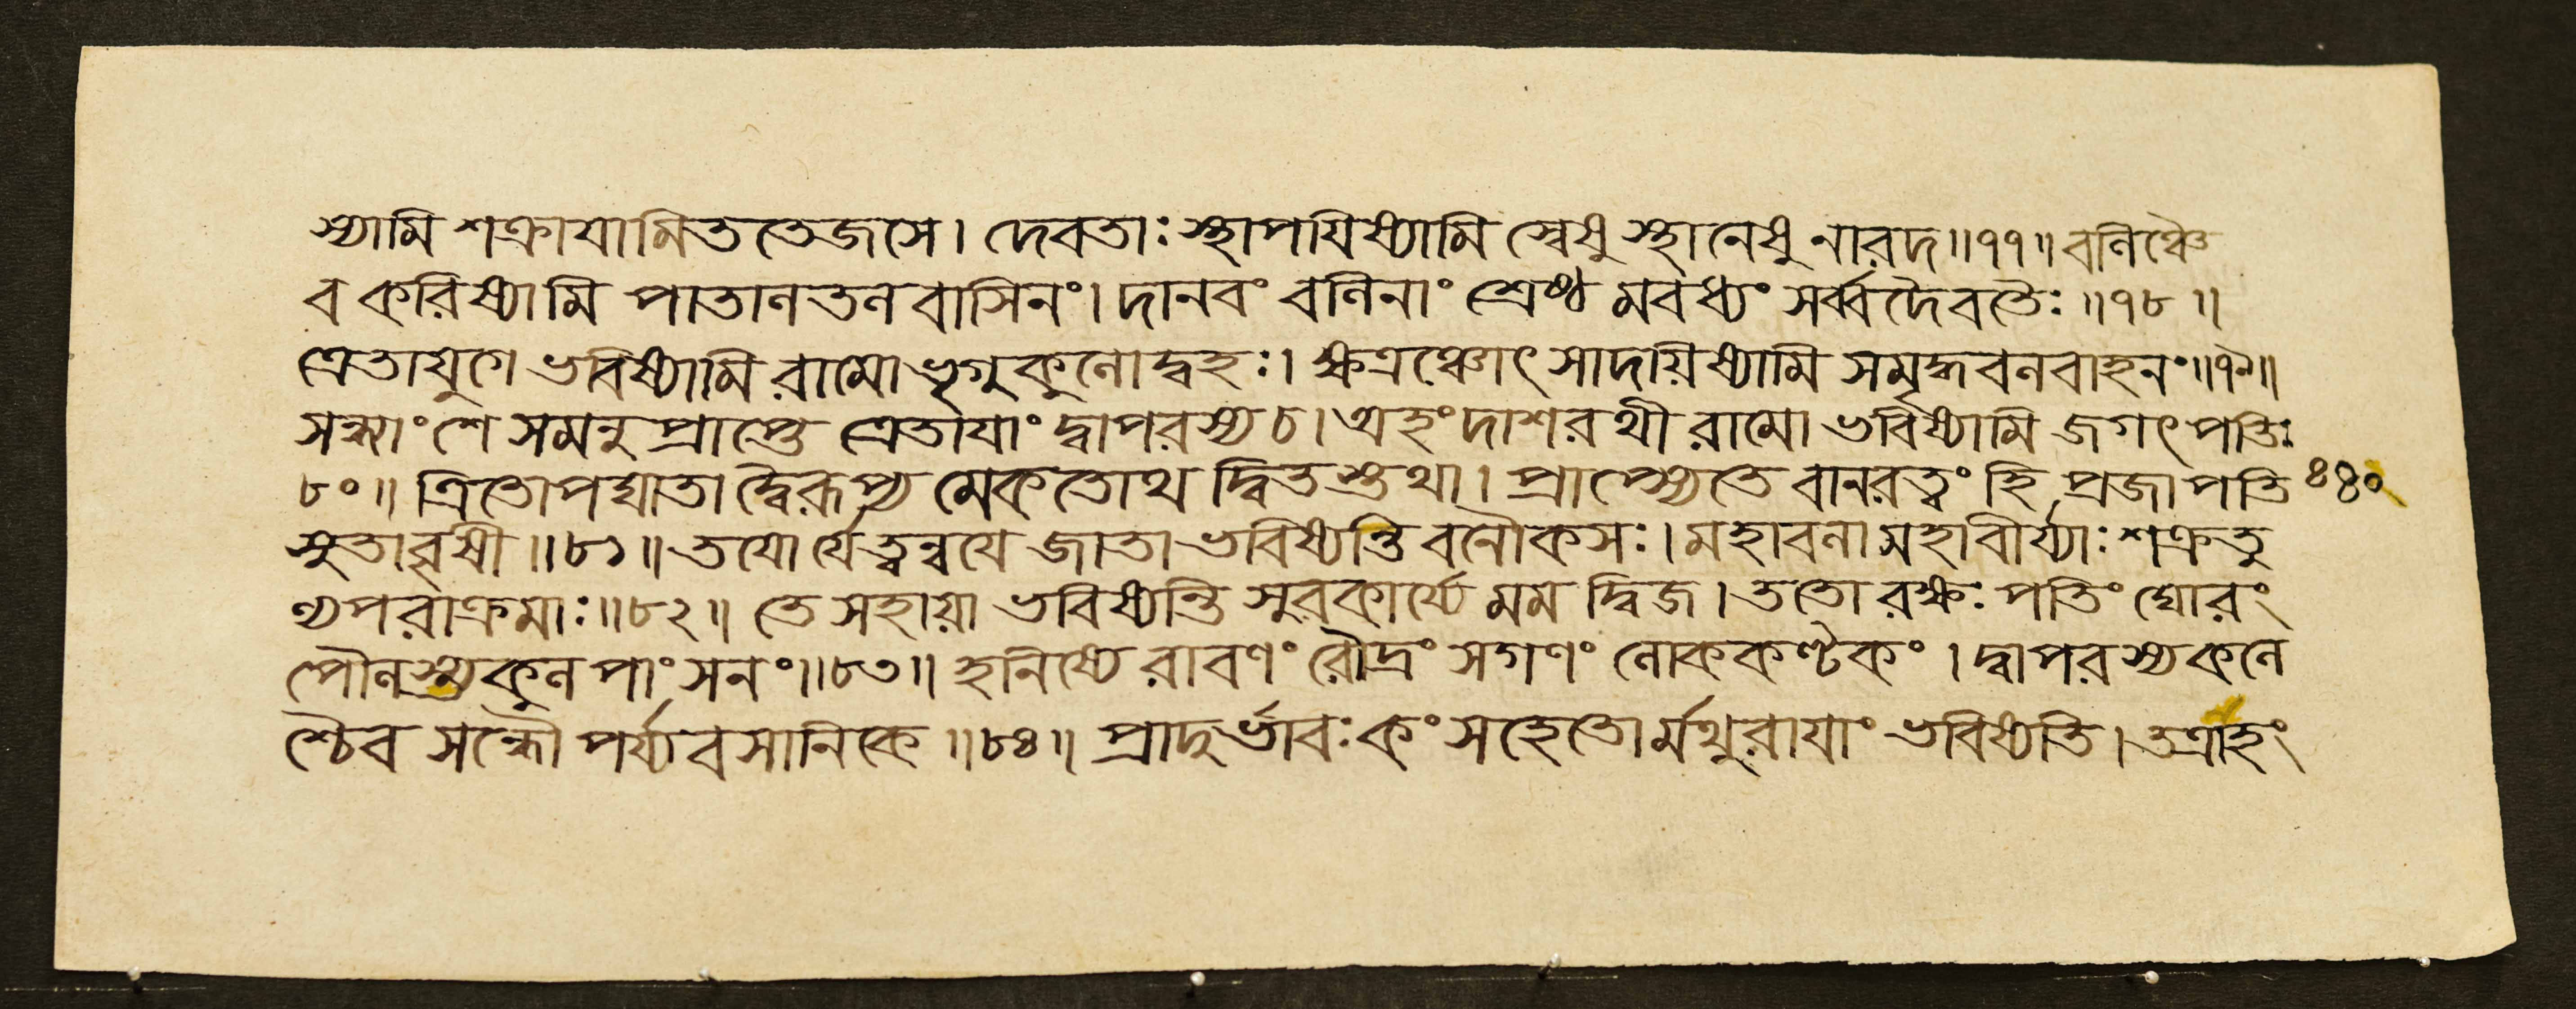 স্যামি শক্রাযামিততেজসে। দেবতাঃ স্থাপযিষ্যামি স্বেষু স্থানেষু নারদ॥৭৭॥ বলিঞ্চৈ
ব করিষ্যামি পাতালতলবাসিনং। দানবং বলিনাং শ্রেষ্ঠমবধ্যং সর্ব্বদৈবতৈঃ॥৭৮॥
ত্রেতাযুগে ভবিষ্যামি রামো ভৃগুকুলোদ্বহঃ। ক্ষত্রঞ্চোৎসাদয়িষ্যামি সমৃদ্ধবলবাহনং॥৭৯॥
সন্ধ্যাংশে সমনুপ্রাপ্তে ত্রেতাযাং দ্বাপরস্য চ। অহং দাশরথী রামো ভবিষ্যামি জগৎপতিঃ
৮০॥ ত্রিতোপঘাতাদ্বৈরূপ্যমেকতোথ দ্বিতস্তথা। প্রাপ্স্যেতে বানরত্বং হি প্রজাপতি ৪৪০
সুতাবৃষী॥৮১॥ তযোর্যেত্বন্বযে জাতা ভবিষ্যন্তি বনৌকসঃ। মহাবলা মহাবীর্য্যাঃ শক্রতু
ল্যপরাক্রমাঃ॥৮২॥ তে সহায়া ভবিষ্যন্তি সুরকার্য্যে মম দ্বিজ। ততো রক্ষঃপতিং ঘোরং
পৌলস্ত্যকুলপাংসনং॥৮৩॥ হনিষ্যে রাবণং রৌদ্রং সগণং লোককণ্টকং। দ্বাপরস্য কলে
শ্চৈব সন্ধৌ পর্য্যবসানিকে॥৮৪॥ প্রাদুর্ভাবঃ কংসহেতোর্মথুরাযাং ভবিষ্যতি। তত্রাহং